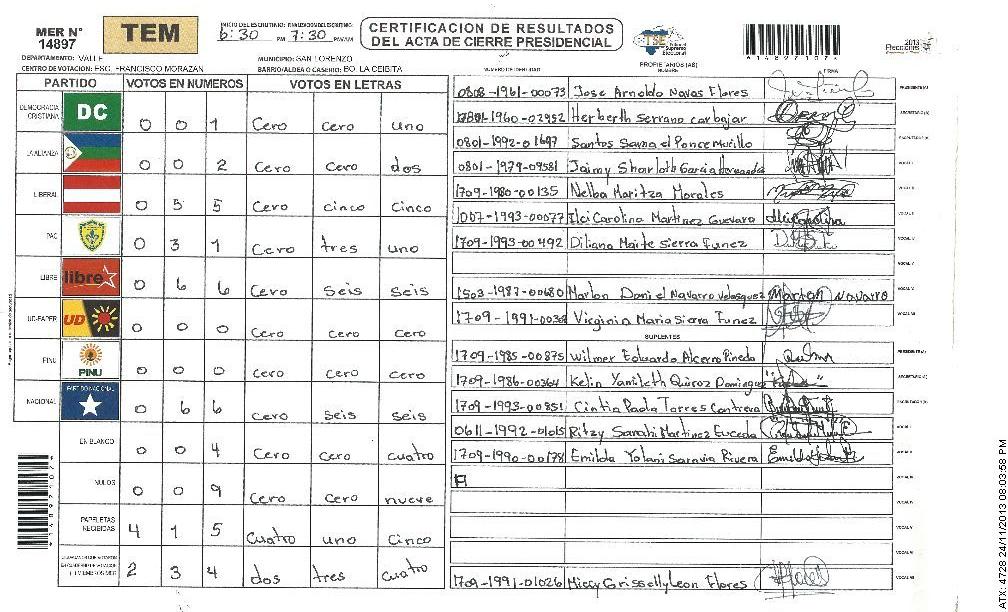 MER N° 14897
TEM
INICIO DEL ESCRUTINIO: FINALIZACION DEL ESCRUTINIO:
6:30 PM 7:30 PM/AM
CERTIFICACION DE RESULTADOS
DEL ACTA DE CIERRE PRESIDENCIAL
TSE Tribunal Supremo Electoral
2013
Elecciones
A148971074
DEPARTAMENTO: VALLE
MUNICIPIO: SAN LORENZO
CENTRO DE VOTACION: ESC. FRANCISCO MORAZAN
BARRIO/ALDEA O CASERIO: BO. LA CEIBITA
NUMERO DE IDENTIDAD
PROPIETARIOS (AS)
NOMBRE
FIRMA
PARTIDO VOTOS EN NUMEROS VOTOS EN LETRAS
DEMOCRACIA CRISTIANA DC 0 0 1 Cero Cero uno
LA ALIANZA 0 0 2 Cero Cero dos
LIBERAL 0 5 5 Cero cinco Cinco
PAC 0 3 1 Cero tres uno
LIBRE libre 0 6 6 Cero Seis seis
UD-FAPER UD 0 0 0 Cero Cero Cero
PINU PINU 0 0 0 Cero Cero Cero
NACIONAL PARTIDO NACIONAL 0 6 6 cero seis seis
EN BLANCO 0 0 4 Cero Cero cuatro
NULOS 0 0 9 Cero Cero nueve
PAPELETAS RECIBIDAS 4 1 5 Cuatro uno Cinco
2 3 4 dos tres cuatro
0808-1961-00073 Jose Arnoldo Navas Flores PRESIDENTE(A)
0801-1960-02952 Herberth Serrano carbajar SECRETARIO(A)
0801-1992-01697 Santos Samuel Ponce Murillo ESCRUTADOR(A)
0801-1979-09581 Jaimy Sharloth Garcia Hernandez VOCAL I
1709-1980-00135 Nelba Maritza Morales VOCAL II
1007-1993-00077 Ilci Carolina Martinez Guevara VOCAL III
1709-1993-00492 Diliana Maite Sierra Funez VOCAL IV
VOCAL V
1503-1987-00680 Marlon Daniel Navarro Velasquez Marlon Navarro VOCAL VI
1709-1991-00368 Virginia Maria Sierra Funez VOCAL VII
SUPLENTES
1709-1985-00875 Wilmer Eduardo Alcerro Pineda PRESIDENTE(A)
1709-1986-00364 Kelin Yamileth Quiroz Dominguez SECRETARIO(A)
1709-1993-00851 Cintia Paola Torres Contrera ESCRUTADOR(A)
0611-1992-01015 Ritzy Sarahi Martinez Euceda VOCAL I
1709-1990-00178 Emilda Yolani Saravia Rivera VOCAL II
VOCAL III
VOCAL IV
VOCAL V
VOCAL VI
1709-1991-01026 Missy Grisselly Leon Flores VOCAL VII
ATX: 4728 24/11/2013 08:03:58 PM